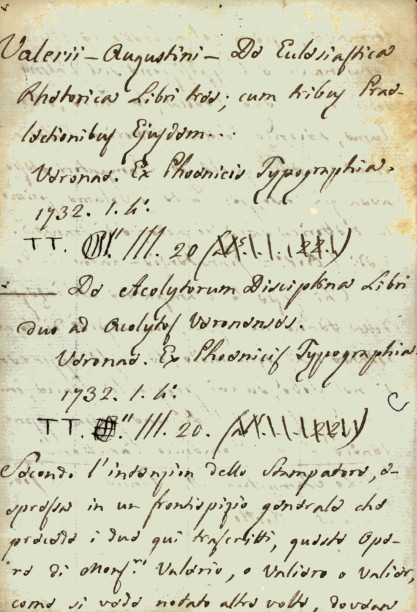 Valerii - Augustini - De Eclesiastica
Rhetorica Libri tres; cum tribus Prae-
lectionibus Ejusdem...
Veronae. Ex Phoenicis Typographia.
1732. 1. 4.
TT. III. 20
De Acolytorum Disciplena Libri
duo ad Acolytos Veronenses.
Veronae. Ex Phoenicis Typographia.
1732. 1. 4.
TT. III. 20.
Secondo l'intenzion dello Stampatore, e-
spressa in un frontispizio generale che
precede i due qui trascritti, queste Ope-
re di Monsr. Valerio, o Valiero o Valier,
come si vede notato altre volte, dovean